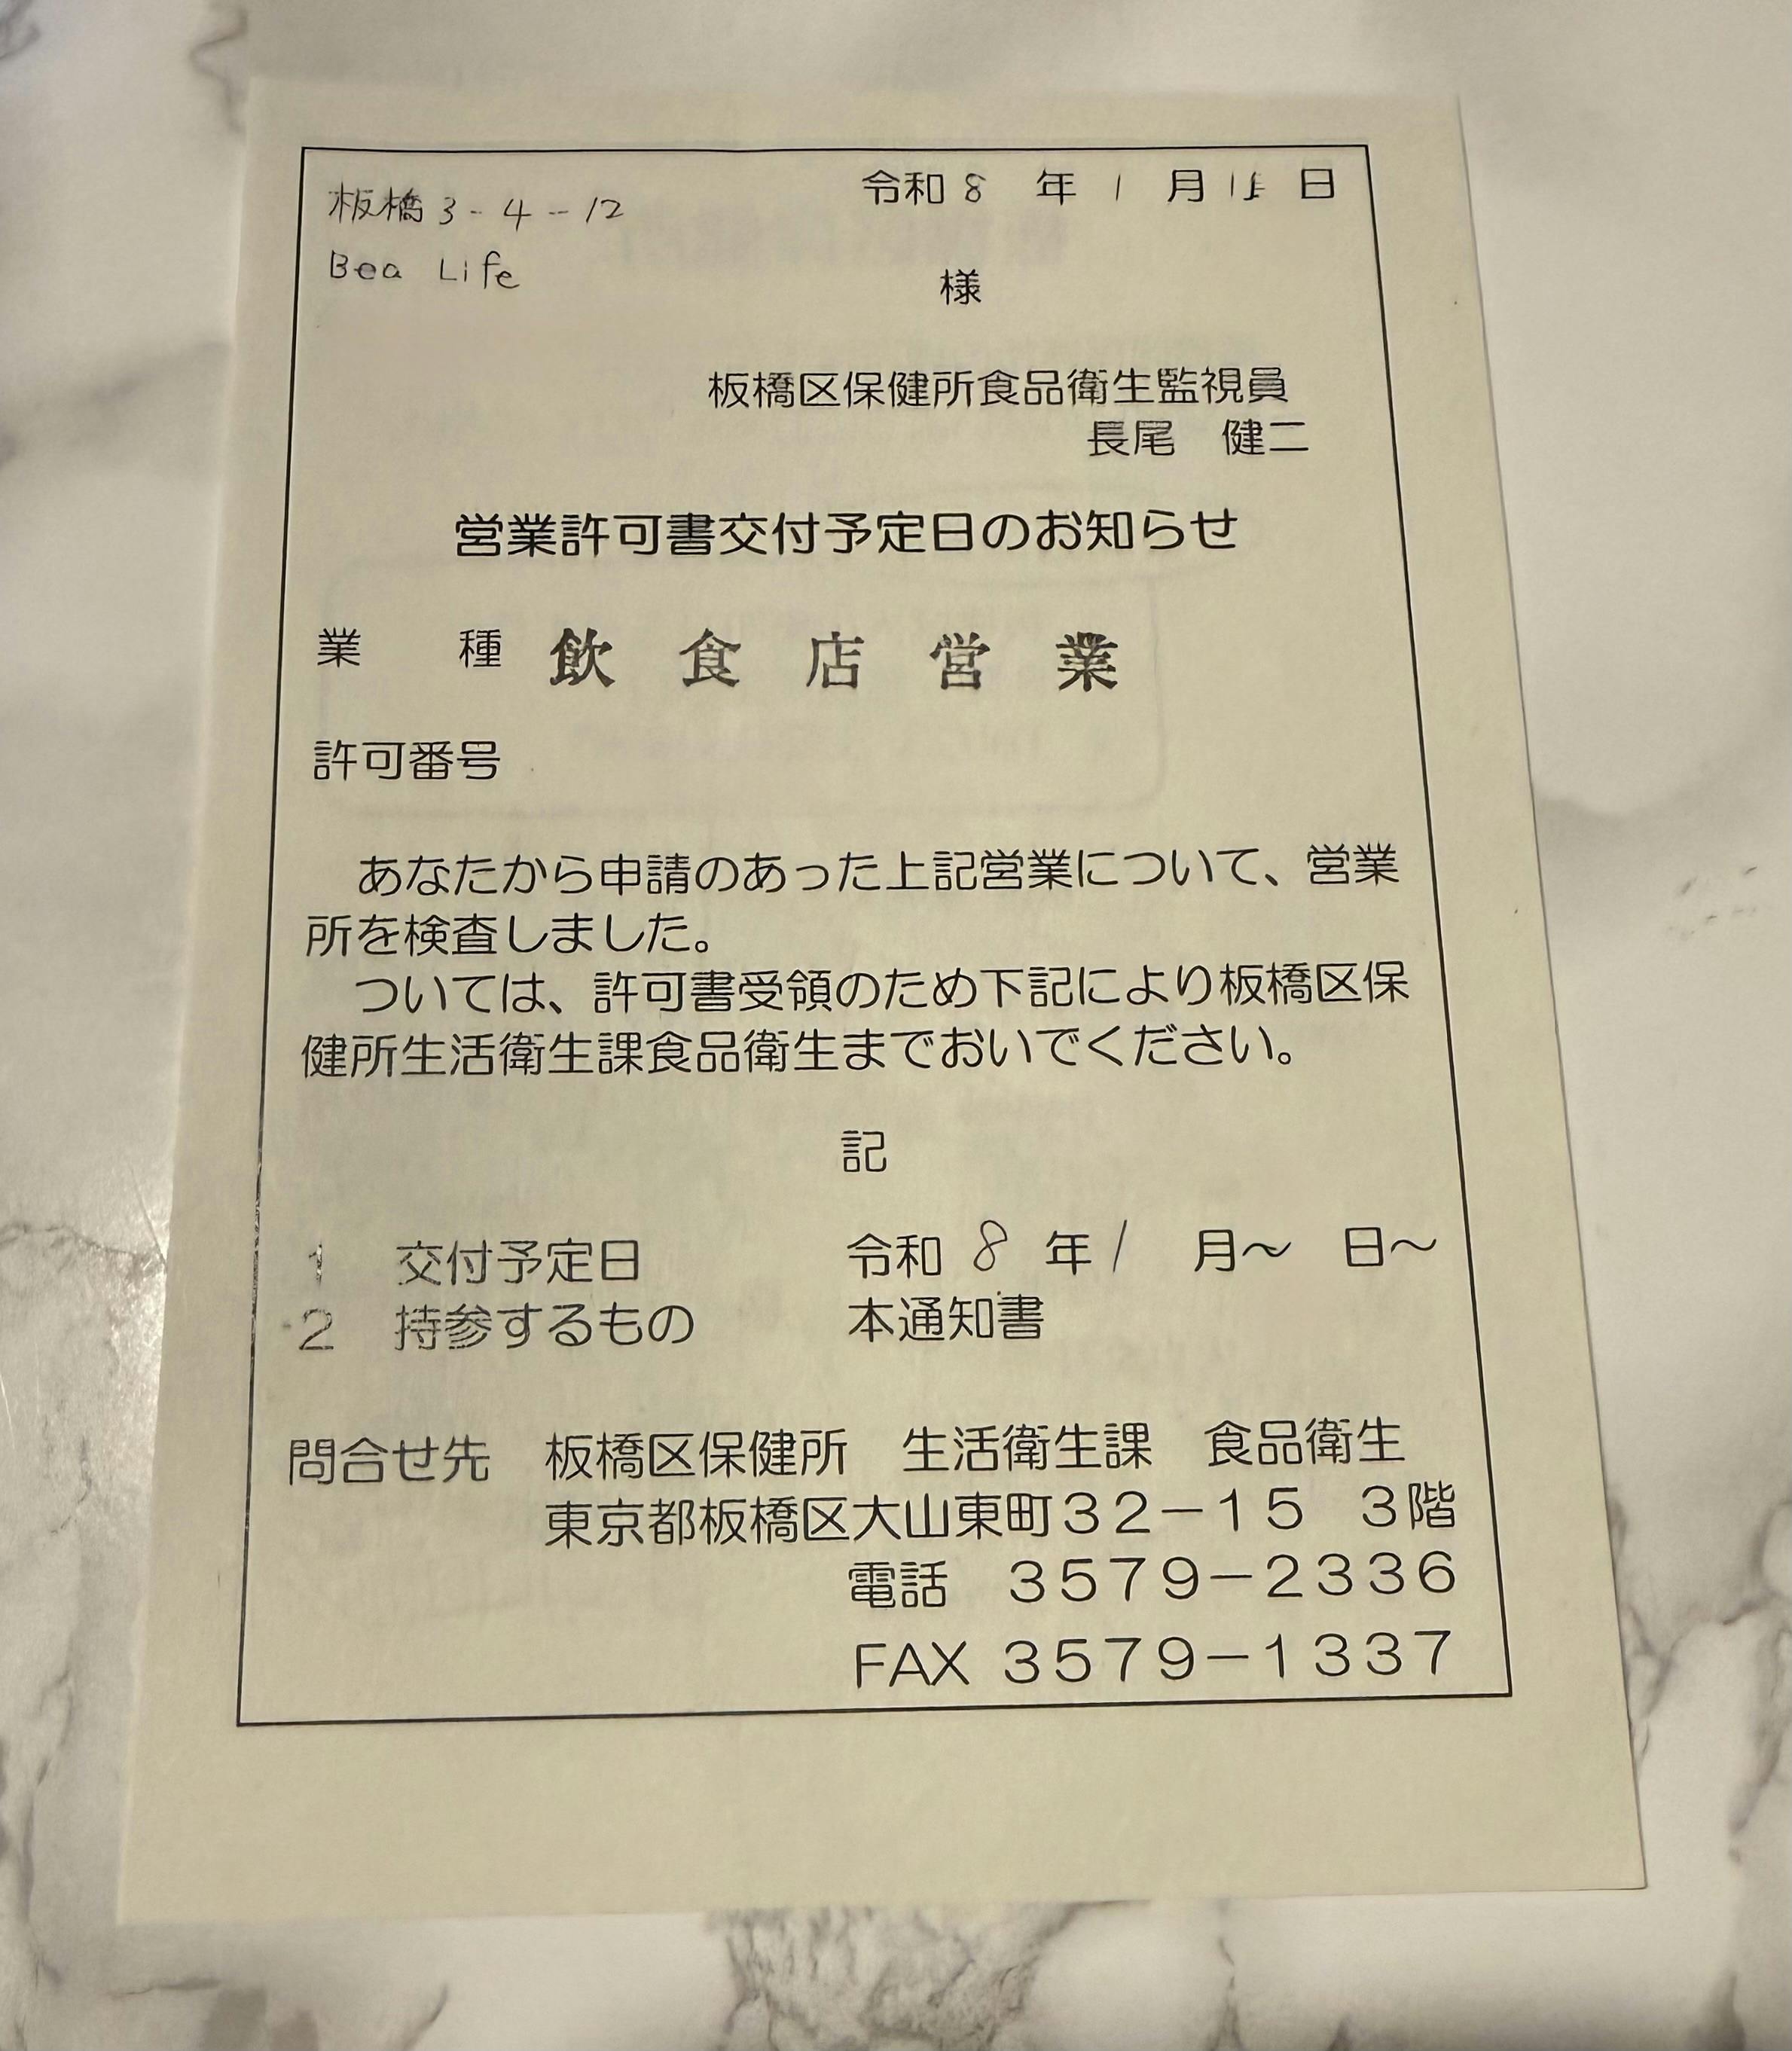 板橋3-4-12
Bea Life
令和 8 年 1 月 日
様
板橋区保健所食品衛生監視員
長尾 健二
営業許可書交付予定日のお知らせ
業 種 飲食店営業
許可番号
あなたから申請のあった上記営業について、営業
所を検査しました。
ついては、許可書受領のため下記により板橋区保
健所生活衛生課食品衛生までおいでください。
記
1 交付予定日 令和 8 年 1 月〜 日〜
2 持参するもの 本通知書
問合せ先 板橋区保健所 生活衛生課 食品衛生
東京都板橋区大山東町32-15 3階
電話 3579-2336
FAX 3579-1337